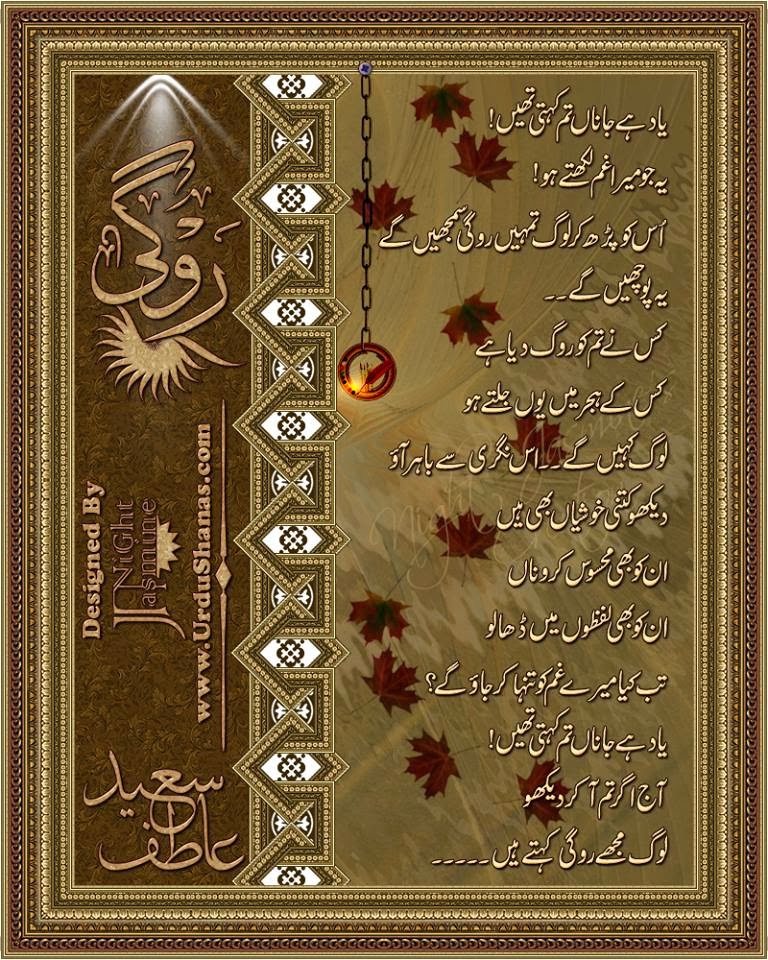 یاد ہے جاناں تم کہتی تھیں!
یہ جو میرا غم لکھتے ہو!
اُس کو پڑھ کر لوگ تمہیں روگی سمجھیں گے
یہ پوچھیں گے۔۔
کس نے تم کو روگ دیا ہے
کس کے ہجر میں یوں جلتے ہو
لوگ کہیں گے۔۔اس نگری سے باہر آؤ
دیکھو کتنی خوشیاں بھی ہیں
ان کو بھی محسوس کرو ناں
ان کو بھی لفظوں میں ڈھالو
تب کیا میرے غم کو تنہا کر جاؤ گے؟
یاد ہے جاناں تم کہتی تھیں!
آج اگر تم آ کر دیکھو
لوگ مجھے روگی کہتے ہیں۔۔۔۔۔
روگی
Designed By
NiGht
Jasmune
www.UrduShanas.com
عاطف سعید